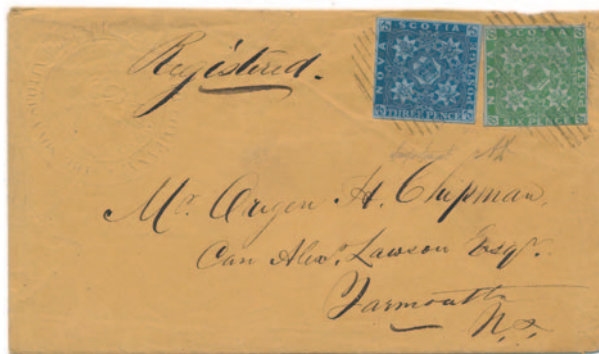 Registered.
NOVA SCOTIA POSTAGE THREE PENCE
NOVA SCOTIA POSTAGE SIX PENCE
Mr. Origen H. Chipman,
Care Alexr. Lawson Esqr.
Yarmouth
N.S.